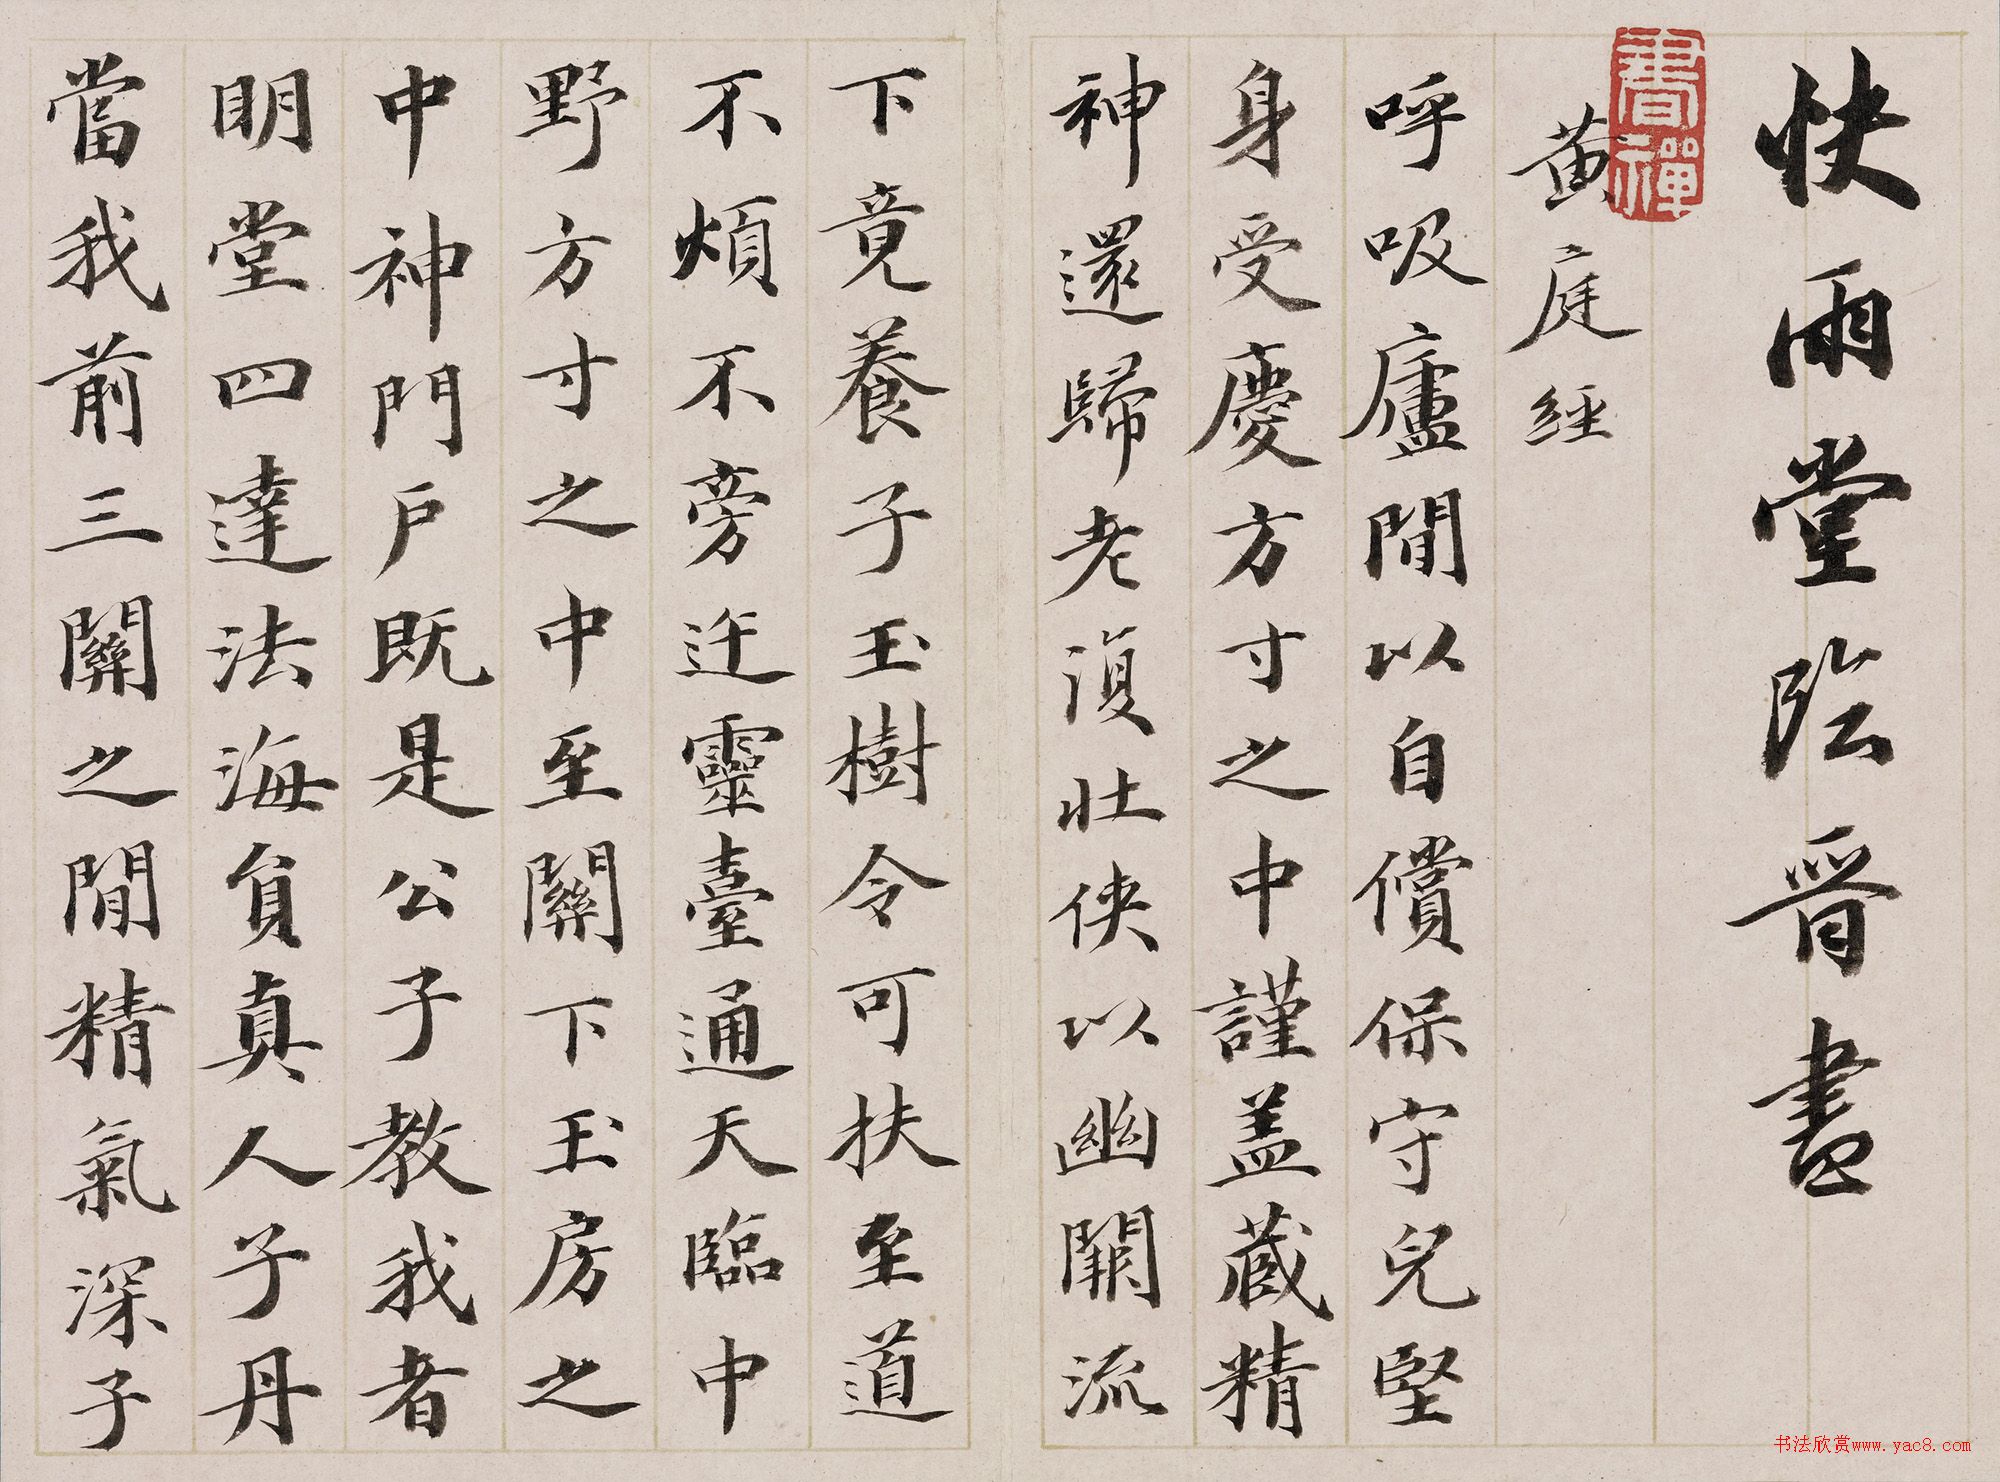 快雨堂臨晉書
書禪
黄庭経
呼吸廬間以自償保守兒堅
身受慶方寸之中謹盖蔵精
神還歸老復壮侠以幽闕流
下竟養子玉樹令可扶至道
不煩不旁迕靈臺通天臨中
野方寸之中至關下玉房之
中神門户既是公子教我者
明堂四達法海負真人子丹
當我前三關之間精氣深子
书法欣赏www.yac8.com